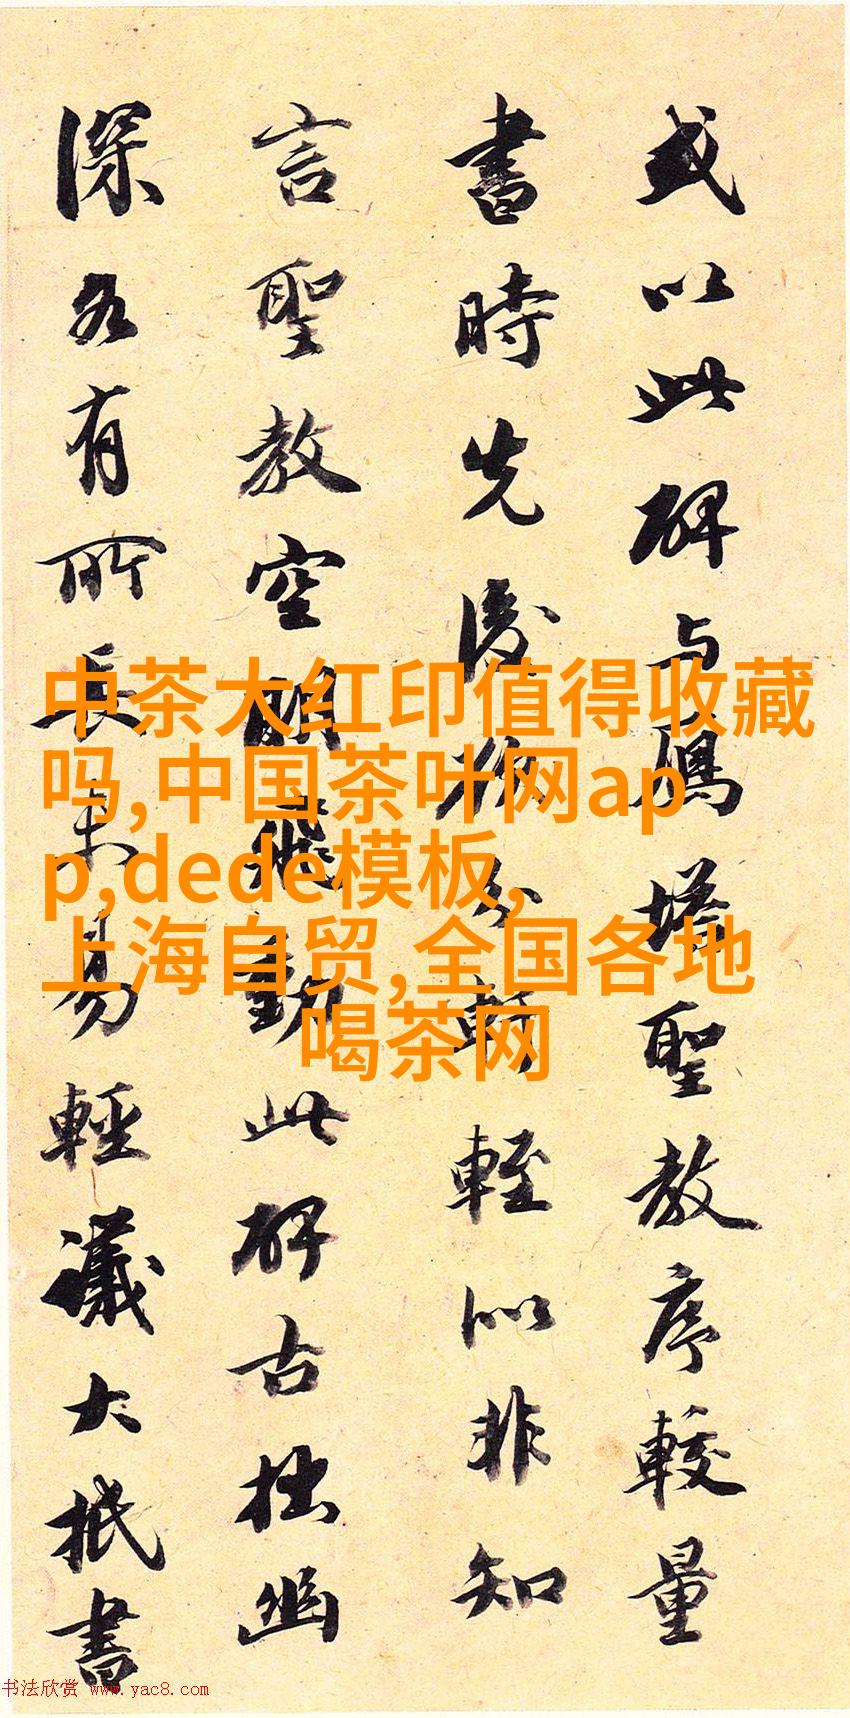 或以此碑与鴈塔聖教序較量
書時先後擬分軒輊似非知
言聖教空明飛動此碑古拙幽
深各有所長未易輕議大抵書
中茶大红印值得收藏
吗,中国茶叶网ap
p,dede模板,
上海自贸,全国各地
喝茶网
书法欣赏 www.yac8.com